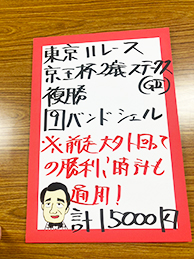 東京11レース
京王杯2歳ステークス
GII
複勝
9バンドシェル
※前走大外回って
の勝利、時計も
適用!
計15000円